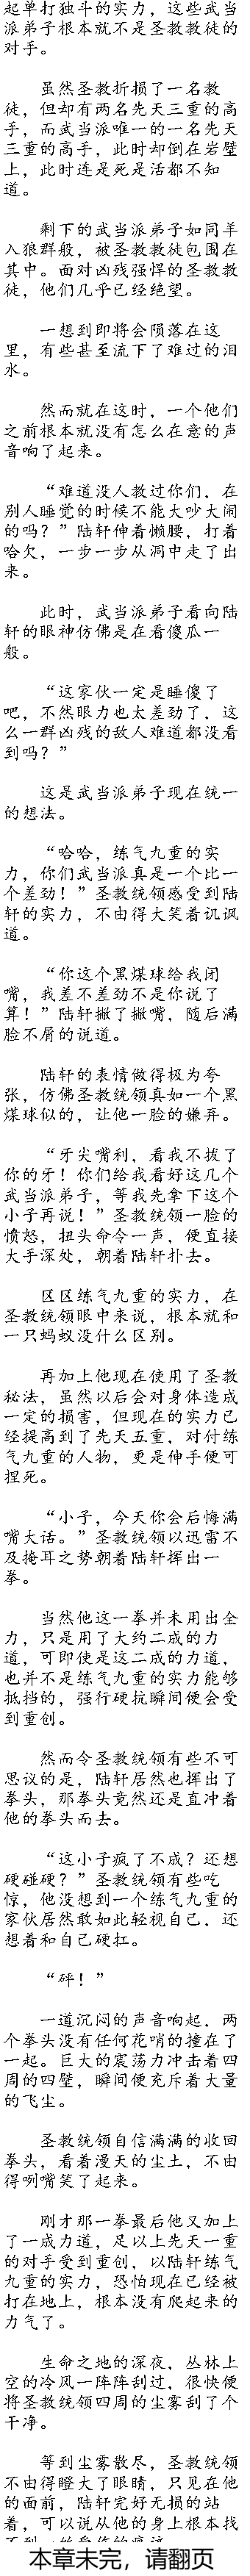 起单打独斗的实力，这些武当
派弟子根本就不是圣教教徒的
对手。
虽然圣教折损了一名教
徒，但却有两名先天三重的高
手，而武当派唯一的一名先天
三重的高手，此时却倒在岩壁
上，此时连是死是活都不知
道。
剩下的武当派弟子如同羊
入狼群般，被圣教教徒包围在
其中。面对凶残强悍的圣教教
徒，他们几乎已经绝望。
一想到即将会陨落在这
里，有些甚至流下了难过的泪
水。
然而就在这时，一个他们
之前根本就没有怎么在意的声
音响了起来。
“难道没人教过你们，在
别人睡觉的时候不能大吵大闹
的吗？”陆轩伸着懒腰，打着
哈欠，一步一步从洞中走了出
来。
此时，武当派弟子看向陆
轩的眼神仿佛是在看傻瓜一
般。
“这家伙一定是睡傻了
吧，不然眼力也太差劲了，这
么一群凶残的敌人难道都没看
到吗？”
这是武当派弟子现在统一
的想法。
“哈哈，练气九重的实
力，你们武当派真是一个比一
个差劲！”圣教统领感受到陆
轩的实力，不由得大笑着讥讽
道。
“你这个黑煤球给我闭
嘴，我差不差劲不是你说了
算！”陆轩撇了撇嘴，随后满
脸不屑的说道。
陆轩的表情做得极为夸
张，仿佛圣教统领真如一个黑
煤球似的，让他一脸的嫌弃。
“牙尖嘴利，看我不拔了
你的牙！你们给我看好这几个
武当派弟子，等我先拿下这个
小子再说！”圣教统领一脸的
愤怒，扭头命令一声，便直接
大手深处，朝着陆轩扑去。
区区练气九重的实力，在
圣教统领眼中来说，根本就和
一只蚂蚁没什么区别。
再加上他现在使用了圣教
秘法，虽然以后会对身体造成
一定的损害，但现在的实力已
经提高到了先天五重，对付练
气九重的人物，更是伸手便可
捏死。
“小子，今天你会后悔满
嘴大话。”圣教统领以迅雷不
及掩耳之势朝着陆轩挥出一
拳。
当然他这一拳并未用出全
力，只是用了大约二成的力
道，可即使是这二成的力道，
也并不是练气九重的实力能够
抵挡的，强行硬抗瞬间便会受
到重创。
然而令圣教统领有些不可
思议的是，陆轩居然也挥出了
拳头，那拳头竟然还是直冲着
他的拳头而去。
“这小子疯了不成？还想
硬碰硬？”圣教统领有些吃
惊，他没想到一个练气九重的
家伙居然敢如此轻视自己，还
想着和自己硬扛。
“砰！”
一道沉闷的声音响起，两
个拳头没有任何花哨的撞在了
一起。巨大的震荡力冲击着四
周的四壁，瞬间便充斥着大量
的飞尘。
圣教统领自信满满的收回
拳头，看着漫天的尘土，不由
得咧嘴笑了起来。
刚才那一拳最后他又加上
了一成力道，足以上先天一重
的对手受到重创，以陆轩练气
九重的实力，恐怕现在已经被
打在地上，根本没有爬起来的
力气了。
生命之地的深夜，丛林上
空的冷风一阵阵刮过，很快便
将圣教统领四周的尘雾刮了个
干净。
等到尘雾散尽，圣教统领
不由得瞪大了眼睛，只见在他
的面前，陆轩完好无损的站
着，可以说从他的身上根本找
本章未完，请翻页